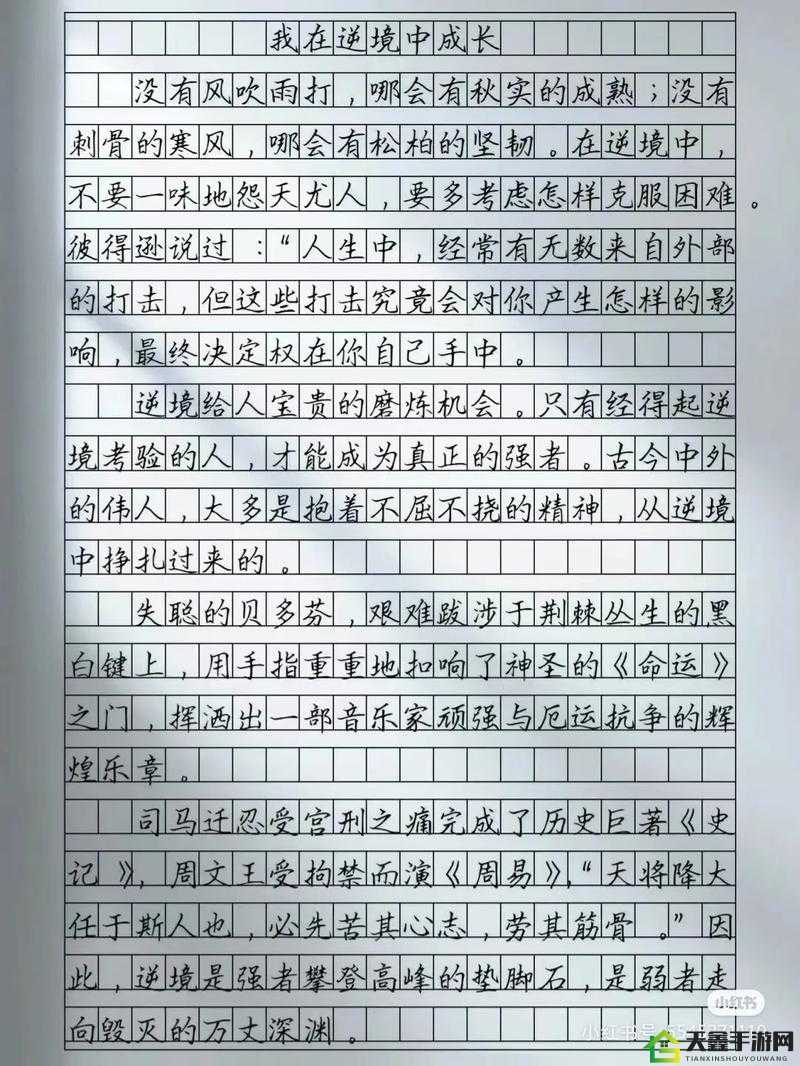 我在逆境中成长
没有风吹雨打，哪会有秋实的成熟；没有
刺骨的寒风，哪会有松柏的坚韧。在逆境中，
不要一味地怨天尤人，要多考虑怎样克服困难。
彼得逊说过：“人生中，经常有无数来自外部
的打击，但这些打击究竟会对你产生怎样的影
响，最终决定权在你自己手中。
逆境给人宝贵的磨炼机会。只有经得起逆
境考验的人，才能成为真正的强者。古今中外
的伟人，大多是抱着不屈不挠的精神，从逆境
中挣扎过来的。
失聪的贝多芬，艰难跋涉于荆棘丛生的黑
白键上，用手指重重地扣响了神圣的《命运》
之门，挥洒出一部音乐家顽强与厄运抗争的辉
煌乐章。
司马迁忍受宫刑之痛完成了历史巨著《史
记》，周文王受拘禁而演《周易》，“天将降大
任于斯人也，必先苦其心志，劳其筋骨。”因
此，逆境是强者攀登高峰的垫脚石，是弱者走
向毁灭的万丈深渊。
小红书
小红书号
天鑫手游网
TIANXINSHOUYOUWANG